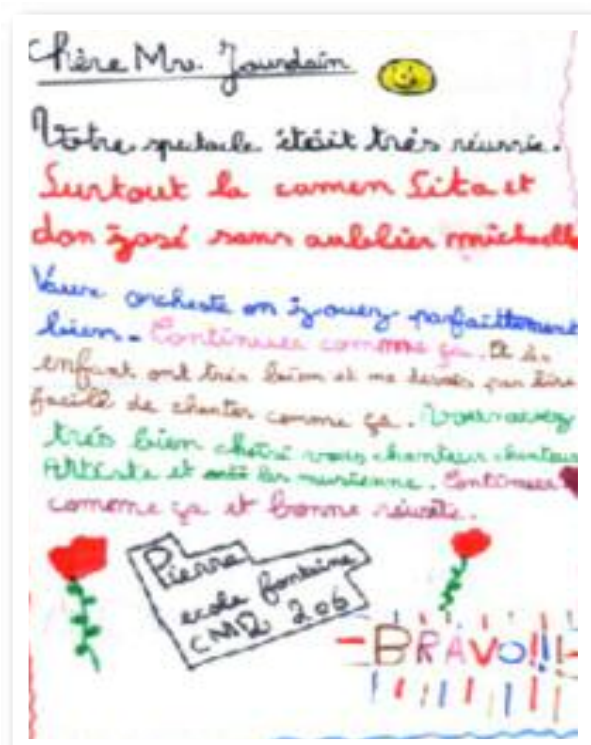 Chère Mr. Jourdain
Votre spectacle était très réussie.
Surtout la camen Sita et
don José sans oublier michaelle
Vaure orcheste on jouez parfaittement
bien. Continuer comme ça. Et
enfant ont très bien et ne devés pas être
facille de chanter comme ça. Vous avez
très bien choisi vous chanteur chanteus
Artiste et les musienne. Continuer
comme ça et bonne réusite.
Pierre
ecole fontaine
CM2 206
BRAVO!!!